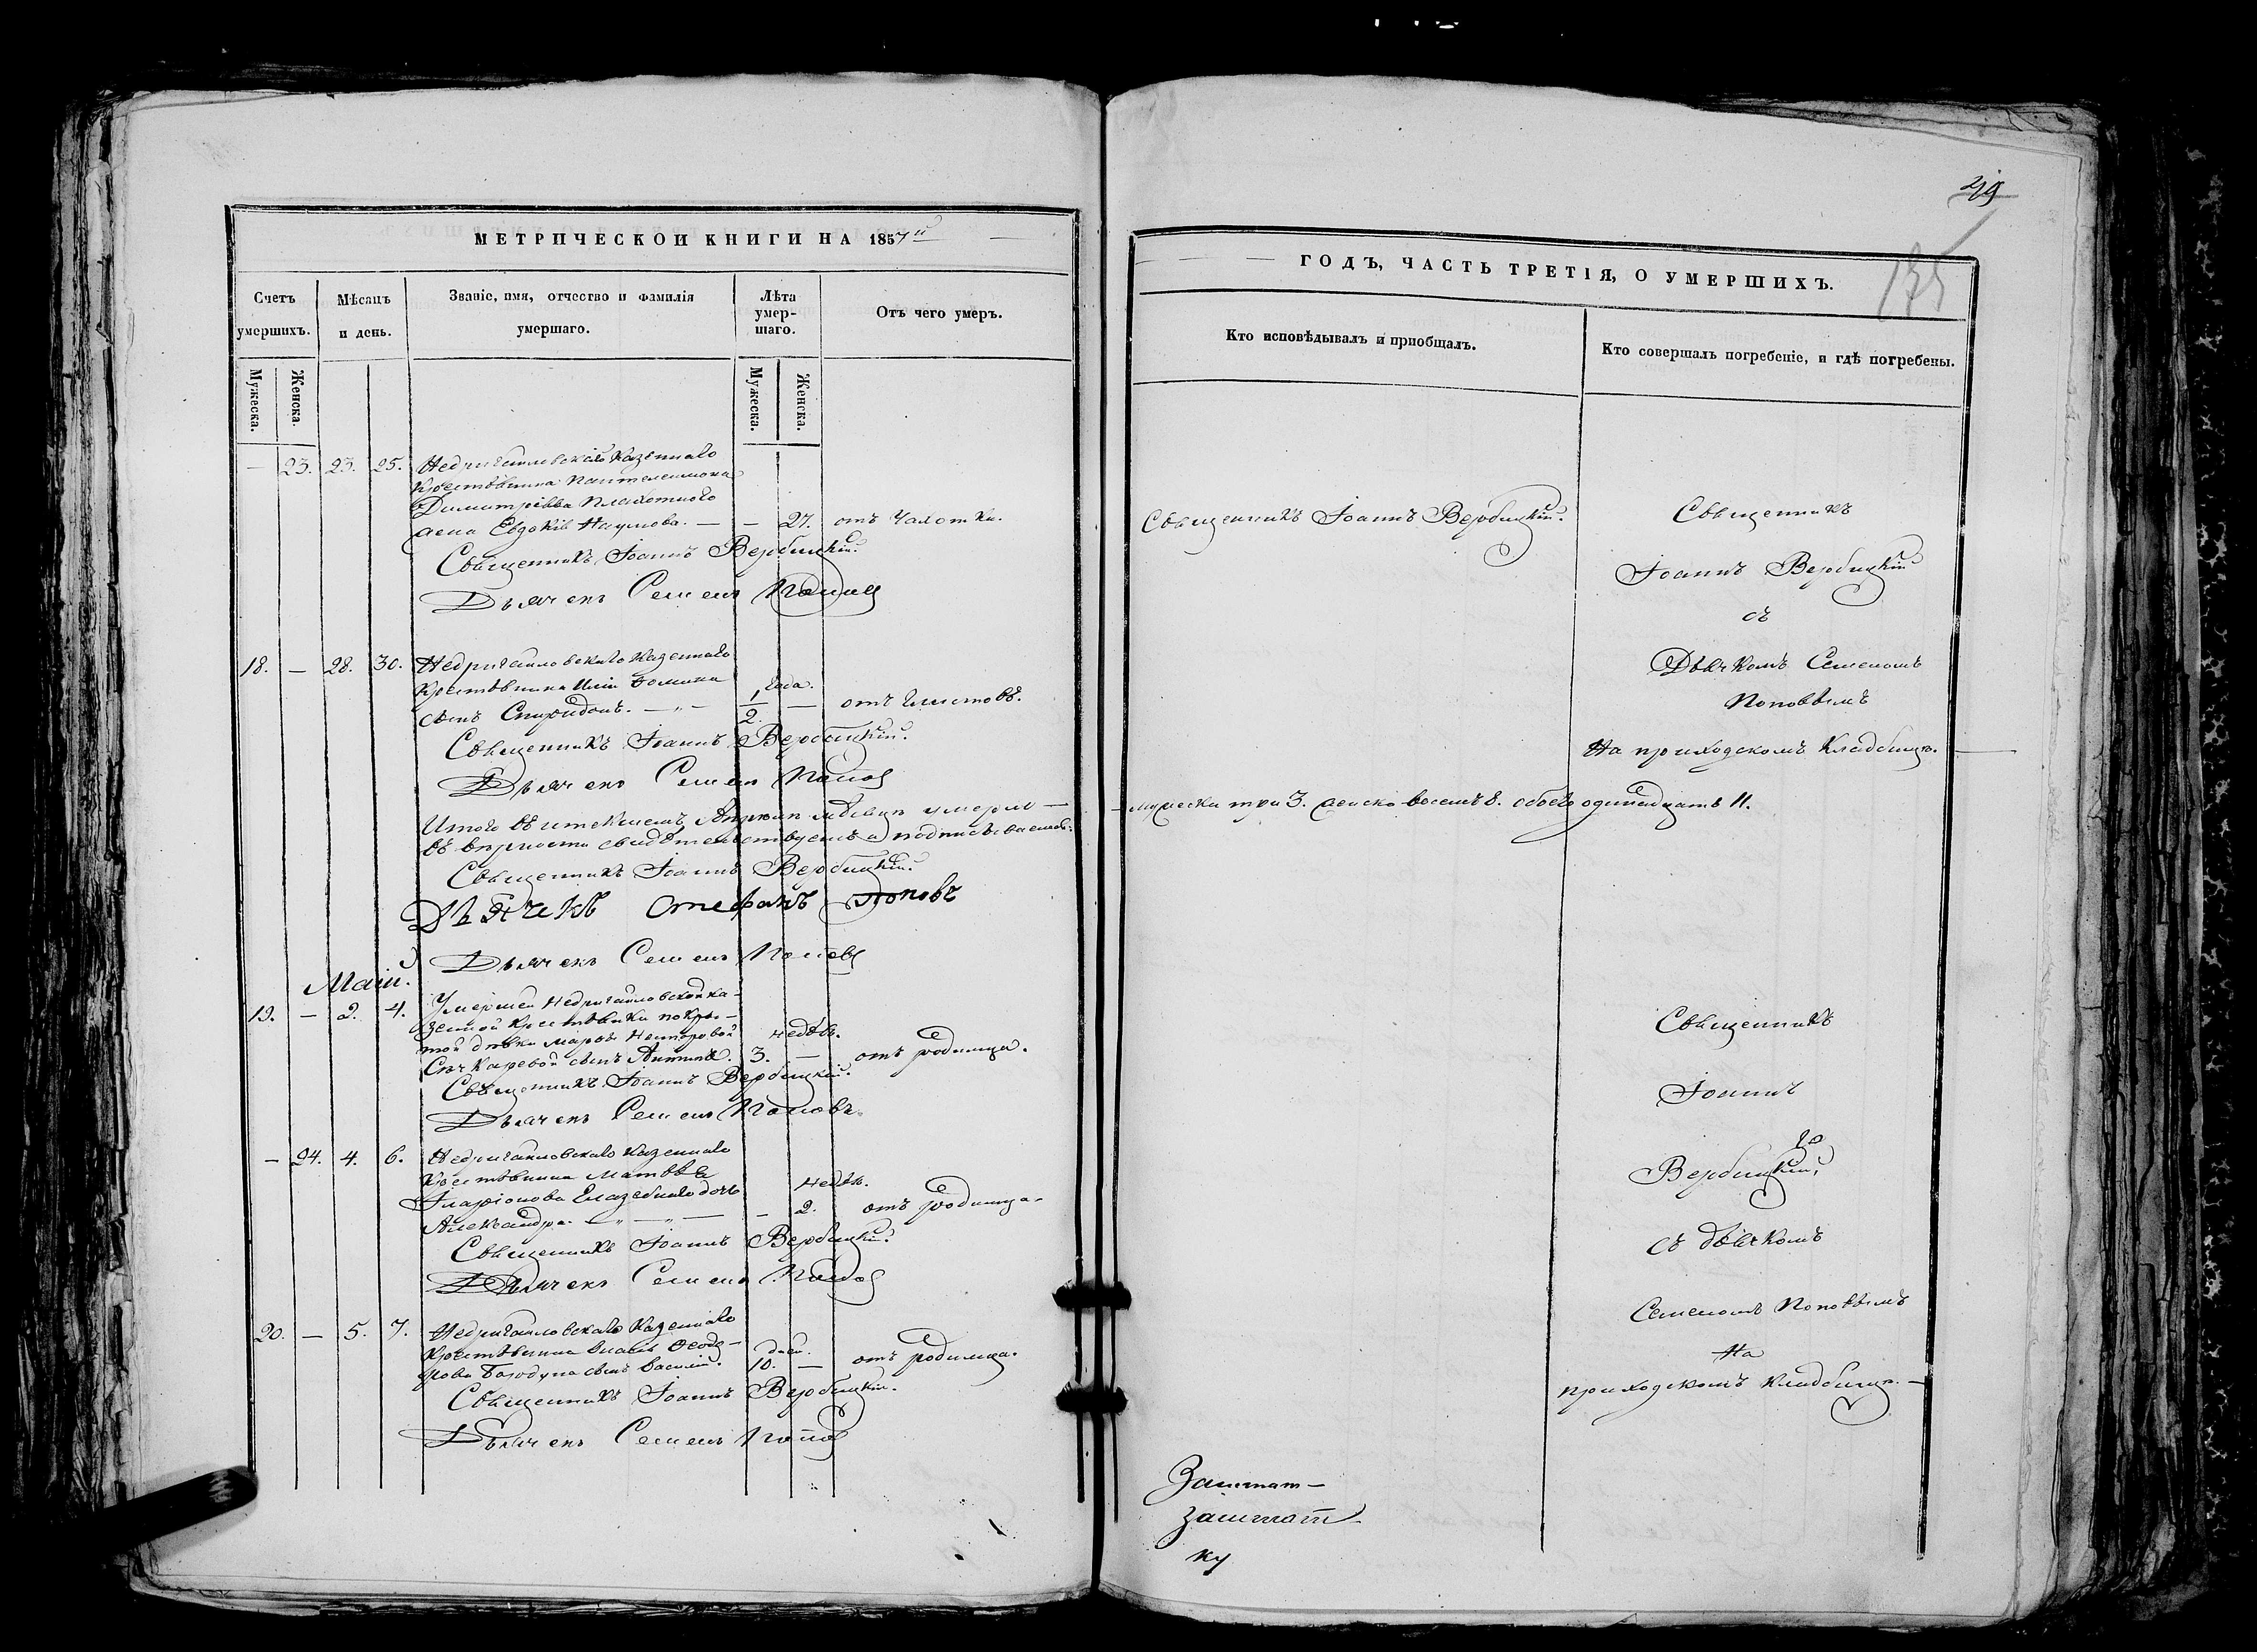 МЕТРИЧЕСКОЙ КНИГИ НА 1857й
Счетъ умершихъ.
Мужеска.
Женска.
Мѣсяцъ и день.
Званіе, имя, отчество и фамилія умершаго.
Лѣта умер-шаго.
Мужеска.
Женска.
Отъ чего умеръ.
— 23. 23. 25. Недригайловскаго Казеннаго
Крестьянина Пантелеимона
Димитріева Плахотнаго
жена Евдокія Наумова. — — 27. отъ Чахотки.
Священникъ Іоаннъ Вербицкій.
Дьячекъ Семенъ Поповъ
18. — 28. 30. Недригайловскаго Казеннаго
Крестьянина Иліи Фомина
сынъ Спиридонъ. — „ — 1/2 года. — отъ глистовъ.
Священникъ Іоаннъ Вербицкій.
Дьячекъ Семенъ Попов
Итого въ истекшемъ Априли мѣсяцѣ умерло —
въ вѣрности свидѣтельствуемъ и подписываемся:
Священникъ Іоаннъ Вербицкій.
Дьячекъ Стефанъ Поповъ
Дьячекъ Семенъ Поповъ
Маій.
19. — 2. 4. Умершей Недригайловской ка-
зенной крестьянки покры-
той дѣвки Марѳы Несторовой
сынъ Антипа. 3. недѣл. — отъ родимца.
Священникъ Іоаннъ Вербицкій.
Дьячекъ Семенъ Поповъ.
— 24. 4. 6. Недригайловскаго Казеннаго
Крестьянина Матвѣя
Иларіонова дочь
Александра. — „ — „ — — 2. недѣл. отъ родимца.
Священникъ Іоаннъ Вербицкій.
Дьячекъ Семенъ Попов
20. — 5. 7. Недригайловскаго Казеннаго
Крестьянина Ѳеодо-
рова сынъ Василій. 10. дней. — отъ родимца.
Священникъ Іоаннъ Вербицкій.
Дьячекъ Семенъ Попов
ГОДЪ, ЧАСТЬ ТРЕТІЯ, О УМЕРШИХЪ.
Кто исповѣдывалъ и пріобщалъ.
Кто совершалъ погребеніе, и гдѣ погребены.
Священникъ Іоаннъ Вербицкій.
Священникъ
Іоаннъ Вербицкій
съ
Дьячкомъ Семеномъ
Поповымъ
На приходскомъ Кладбищѣ.
— мужеска три 3. женско восемь 8. обоего одинадцать 11.
Священникъ
Іоаннъ
Вербицкій,
съ дьячкомъ
Семеномъ Поповымъ
На
приходскомъ Кладбищѣ. —
Заштат—
заштат
ку